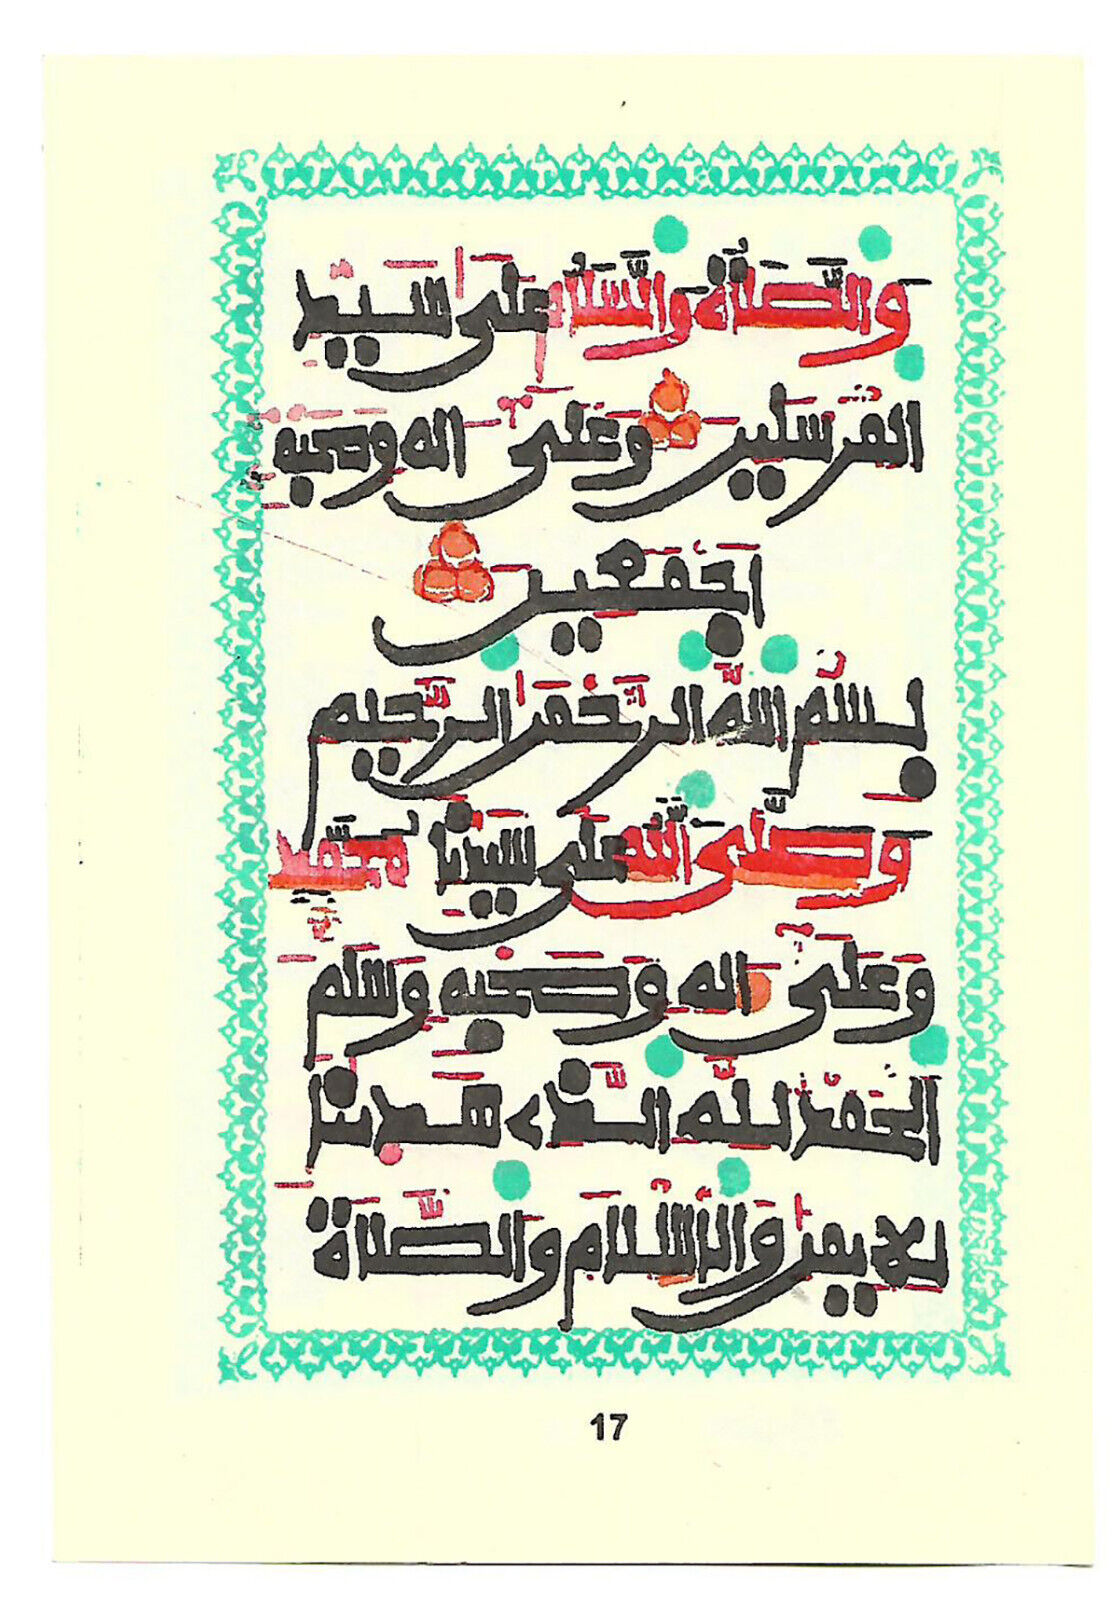 وَالصَّلَاةُ وَالسَّلَامُ عَلَى سَيِّدِ
الْمُرْسَلِينَ وَعَلَى آلِهِ وَصَحْبِهِ
أَجْمَعِينَ
بِسْمِ اللَّهِ الرَّحْمَنِ الرَّحِيمِ
وَصَلَّى اللَّهُ عَلَى سَيِّدِنَا مُحَمَّدٍ
وَعَلَى آلِهِ وَصَحْبِهِ وَسَلَّمَ
الْحَمْدُ لِلَّهِ الَّذِي هَدَينَا
لِلْإِيمَنِ وَالْإِسْلَامِ وَالصَّلَاةُ
17